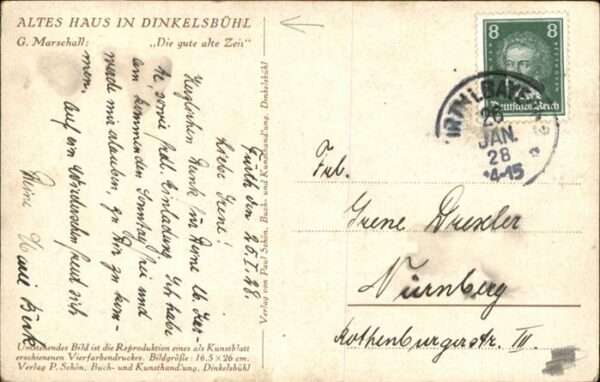 ALTES HAUS IN DINKELSBÜHL
G. Marschall: „Die gute alte Zeit"
Fürth den 25.I.28.
Liebe Irene!
Herzlichen Dank für Deine lb. Zei-
le, sowie frdl. Einladung. Ich habe
am kommenden Sonntag frei und
werde mir erlauben, zu Dir zu kom-
men.
Auf ein Wiedersehen freut sich
Deine
Verlag von Paul Schön, Buch- und Kunsthandlung, Dinkelsbühl
Umstehendes Bild ist die Reproduktion eines als Kunstblatt
erschienenen Vierfarbendruckes. Bildgröße: 16.5 × 26 cm.
Verlag P. Schön, Buch- und Kunsthandlung, Dinkelsbühl
8 8
Deutsches Reich
26
JAN.
28
4-15
Frl.
Irene Drexler
Nürnberg
Rothenburgerstr. III.